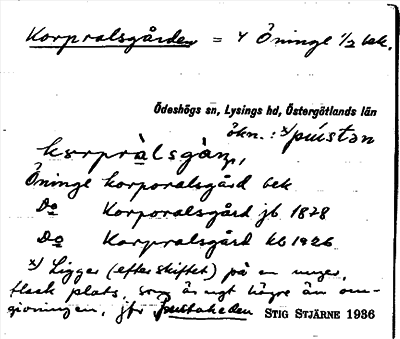 Korpralsgården = 4 Öninge 1/2 bek.
Ödeshögs sn, Lysings hd, Östergötlands län
ökn. : x/ pústən
korpràlsgàɳ,
Öninge korporalsgård bek
Do Korporalsgård jb 1878
Do Korpralsgård kb 1926
x) Ligger (efter skiftet) på en mager,
flack plats, som är ngt högre än om-
givningen, jfr Pustaheden STIG STJÄRNE 1936